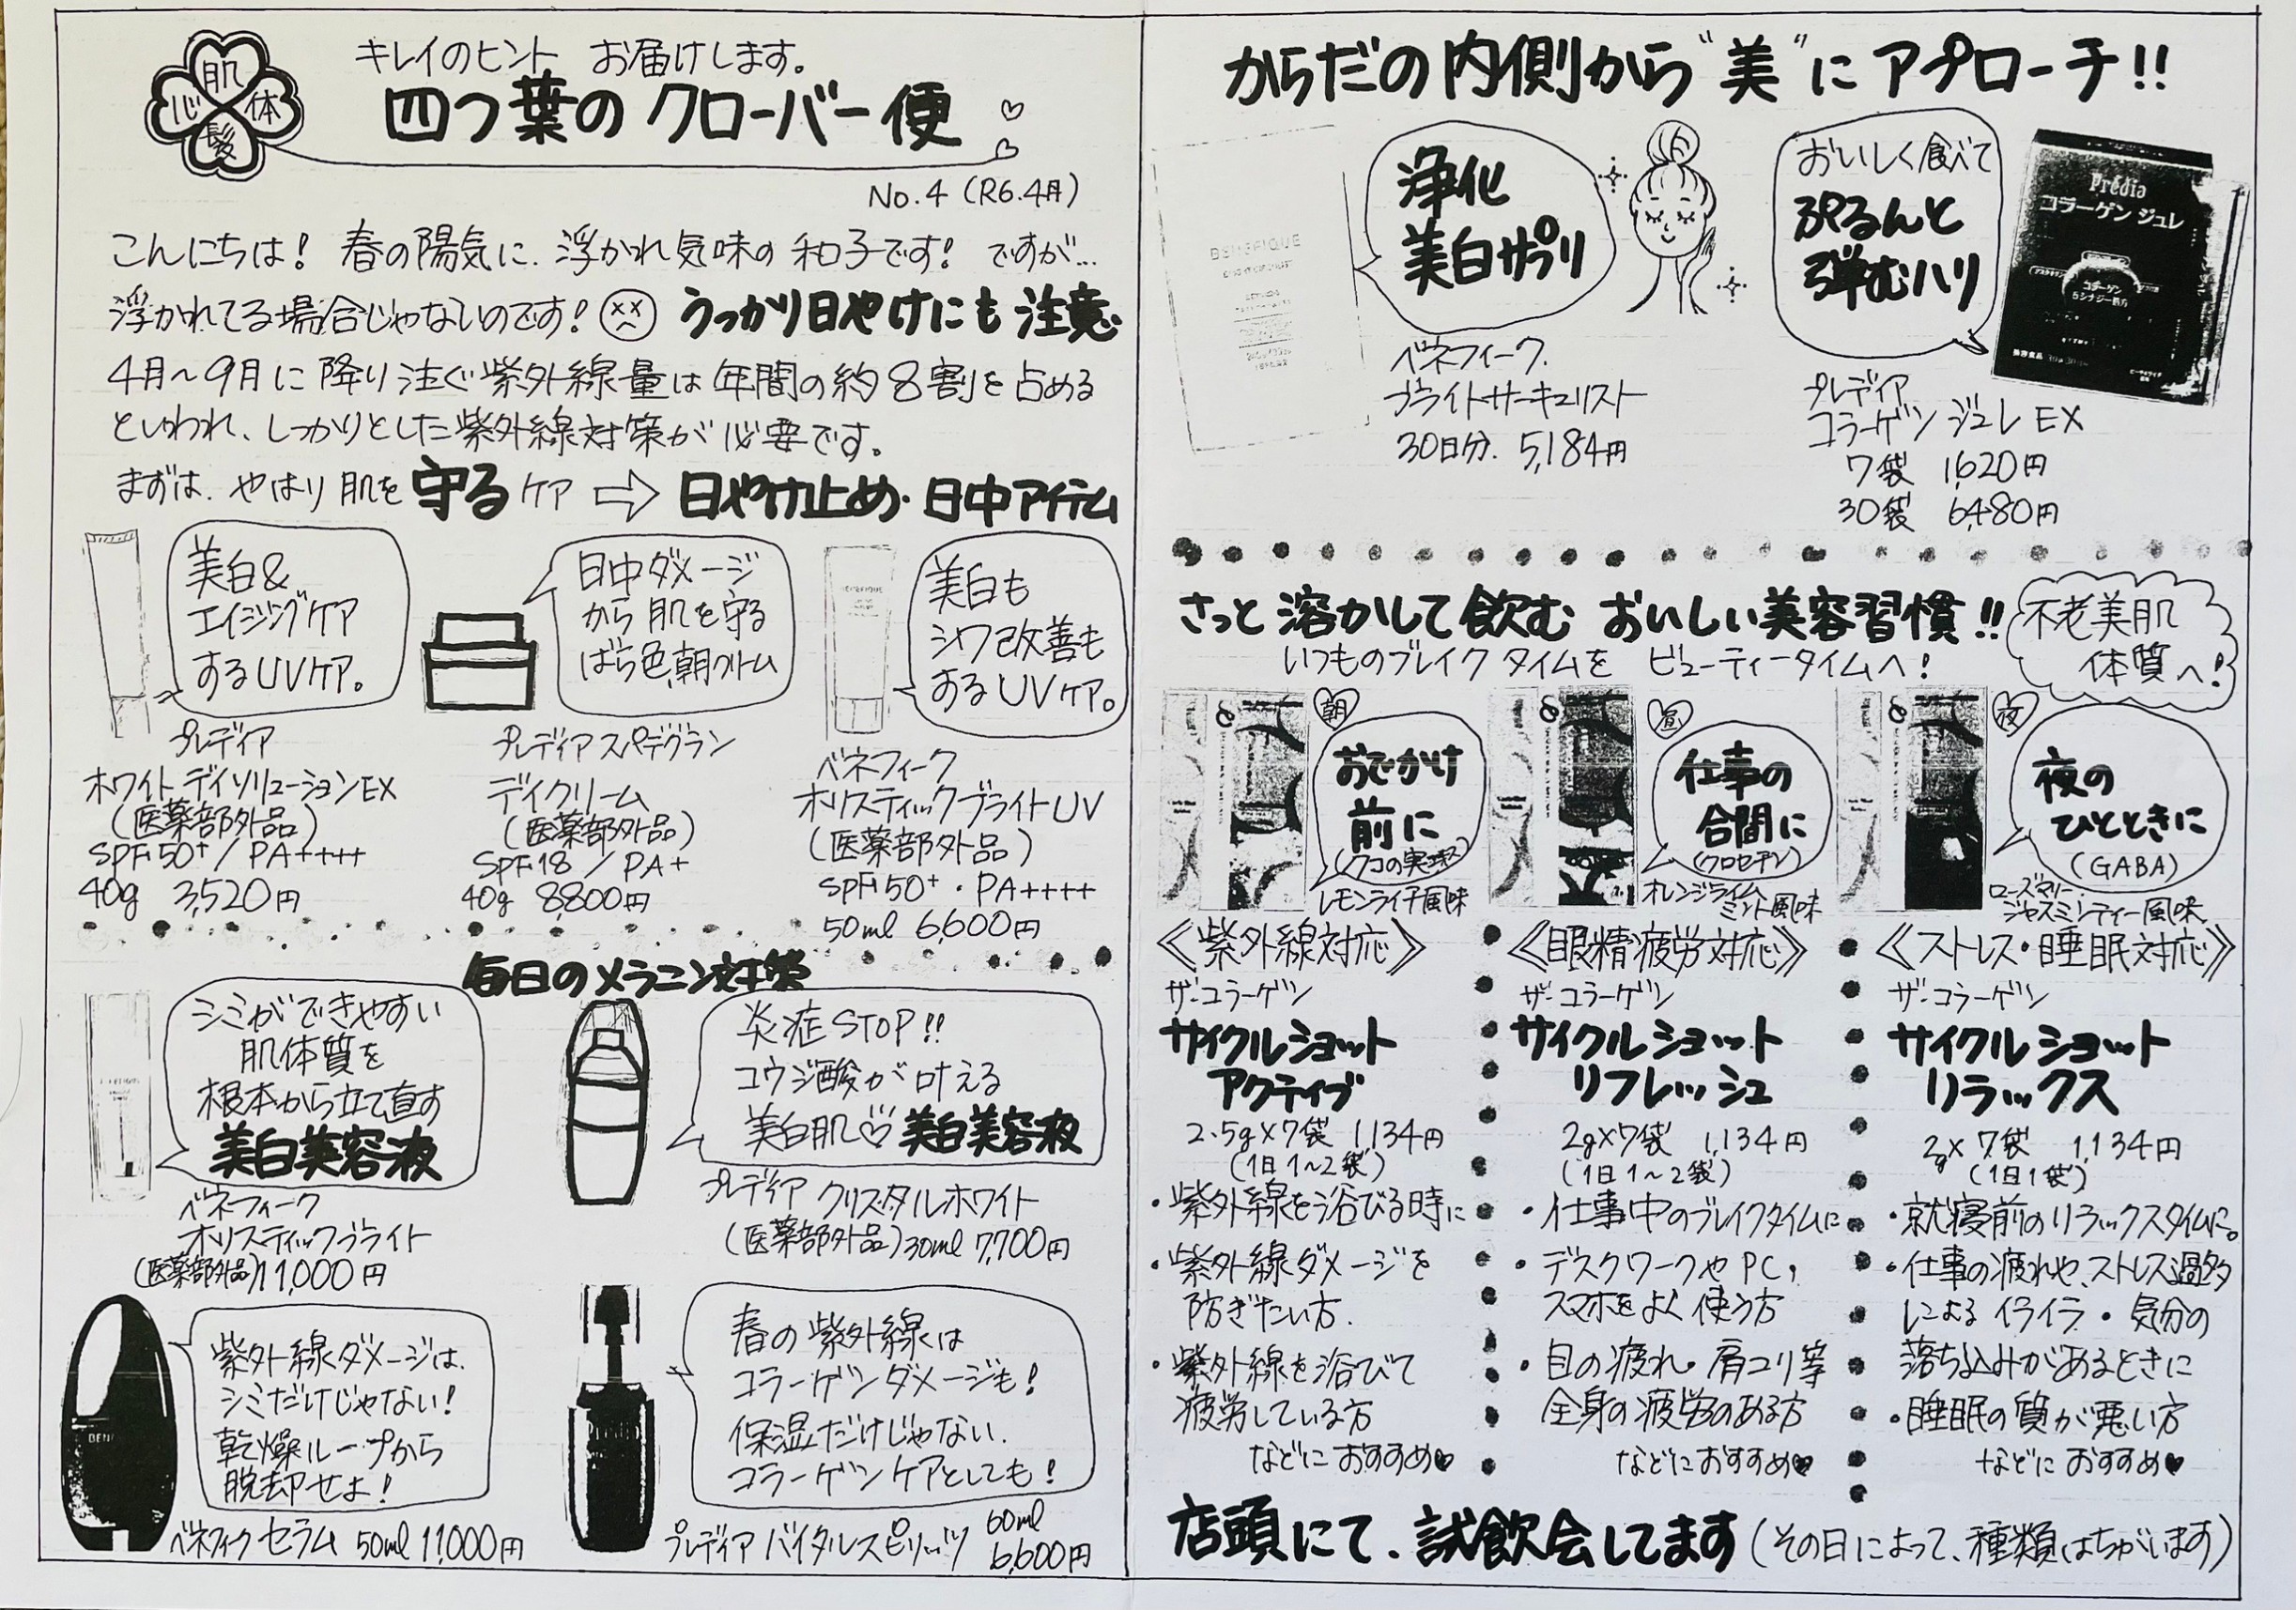 肌
心
体
髪
キレイのヒント お届けします。
四つ葉のクローバー便
No.4 (R6.4月)
こんにちは! 春の陽気に、浮かれ気味の和子です! ですが…
浮かれてる場合じゃないのです! うっかり日やけにも注意
4月〜9月に降り注ぐ紫外線量は年間の約8割を占める
といわれ、しっかりとした紫外線対策が必要です。
まずは、やはり肌を守るケア ⇨ 日やけ止め・日中アイテム
美白&
エイジングケア
するUVケア。
プレディア
ホワイトデイソリューションEX
(医薬部外品)
SPF50+/PA++++
40g 3,520円
日中ダメージ
から肌を守る
ばら色朝クリーム
プレディアスパデグラン
デイクリーム
(医薬部外品)
SPF18/PA+
40g 8,800円
美白も
シワ改善も
するUVケア。
ベネフィーク
ホリスティックブライトUV
(医薬部外品)
SPF50+・PA++++
50ml 6,600円
毎日のメラニン対策
シミができやすい
肌体質を
根本から立て直す
美白美容液
ベネフィーク
ホリスティックブライト
(医薬部外品)11,000円
炎症STOP!!
コウジ酸が叶える
美白肌♡美白美容液
プレディア クリスタルホワイト
(医薬部外品)30ml 7,700円
BENE
紫外線ダメージは、
シミだけじゃない!
乾燥ループから
脱却せよ!
ベネフィーク セラム 50ml 11,000円
春の紫外線は
コラーゲンダメージも!
保湿だけじゃない、
コラーゲンケアとしても!
プレディア バイタルスピリッツ
60ml
6,600円
からだの内側から“美”にアプローチ!!
BENEFIQUE
浄化
美白サプリ
ベネフィーク
ブライトサーキュリスト
30日分. 5,184円
おいしく食べて
ぷるんと
弾むハリ
Prédia
コラーゲン ジュレ
コラーゲン
プレディア
コラーゲン ジュレ EX
7袋 1,620円
30袋 6,480円
さっと溶かして飲む おいしい美容習慣!!
いつものブレイクタイムを ビューティータイムへ!
不老美肌
体質へ!
朝
おでかけ
前に
(クコの実エキス)
レモンライチ風味
《紫外線対応》
ザ・コラーゲン
サイクルショット
アクティブ
2.5g×7袋 1,134円
(1日1〜2袋)
・紫外線を浴びる時に
・紫外線ダメージを
防ぎたい方.
・紫外線を浴びて
疲労している方
などにおすすめ♥
昼
仕事の
合間に
(クロセチン)
オレンジライム
ミント風味
《眼精疲労対応》
ザ・コラーゲン
サイクルショット
リフレッシュ
2g×7袋 1,134円
(1日1〜2袋)
・仕事中のブレイクタイムに
・デスクワークやPC,
スマホをよく使う方
・目の疲れ・肩コリ等
全身の疲労のある方
などにおすすめ♥
夜
夜の
ひとときに
(GABA)
ローズマリー
ジャスミンティー風味
《ストレス・睡眠対応》
ザ・コラーゲン
サイクルショット
リラックス
2g×7袋 1,134円
(1日1袋)
・就寝前のリラックスタイムに。
・仕事の疲れや、ストレス過多
によるイライラ・気分の
落ち込みがあるときに
・睡眠の質が悪い方
などにおすすめ♥
店頭にて、試飲会してます(その日によって、種類はちがいます)